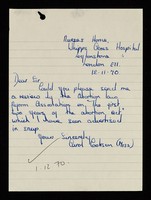 Nurses Home,
Whipps Cross Hospital
Leytonstone
London E11.
18-11-70
Dear Sir,
Could you please send me
a review by the abortion law
reform association on "the first
two years of the abortion act"
which I have seen advertised
in
Yours Sincerely
Carol (Miss)
1.12.70.